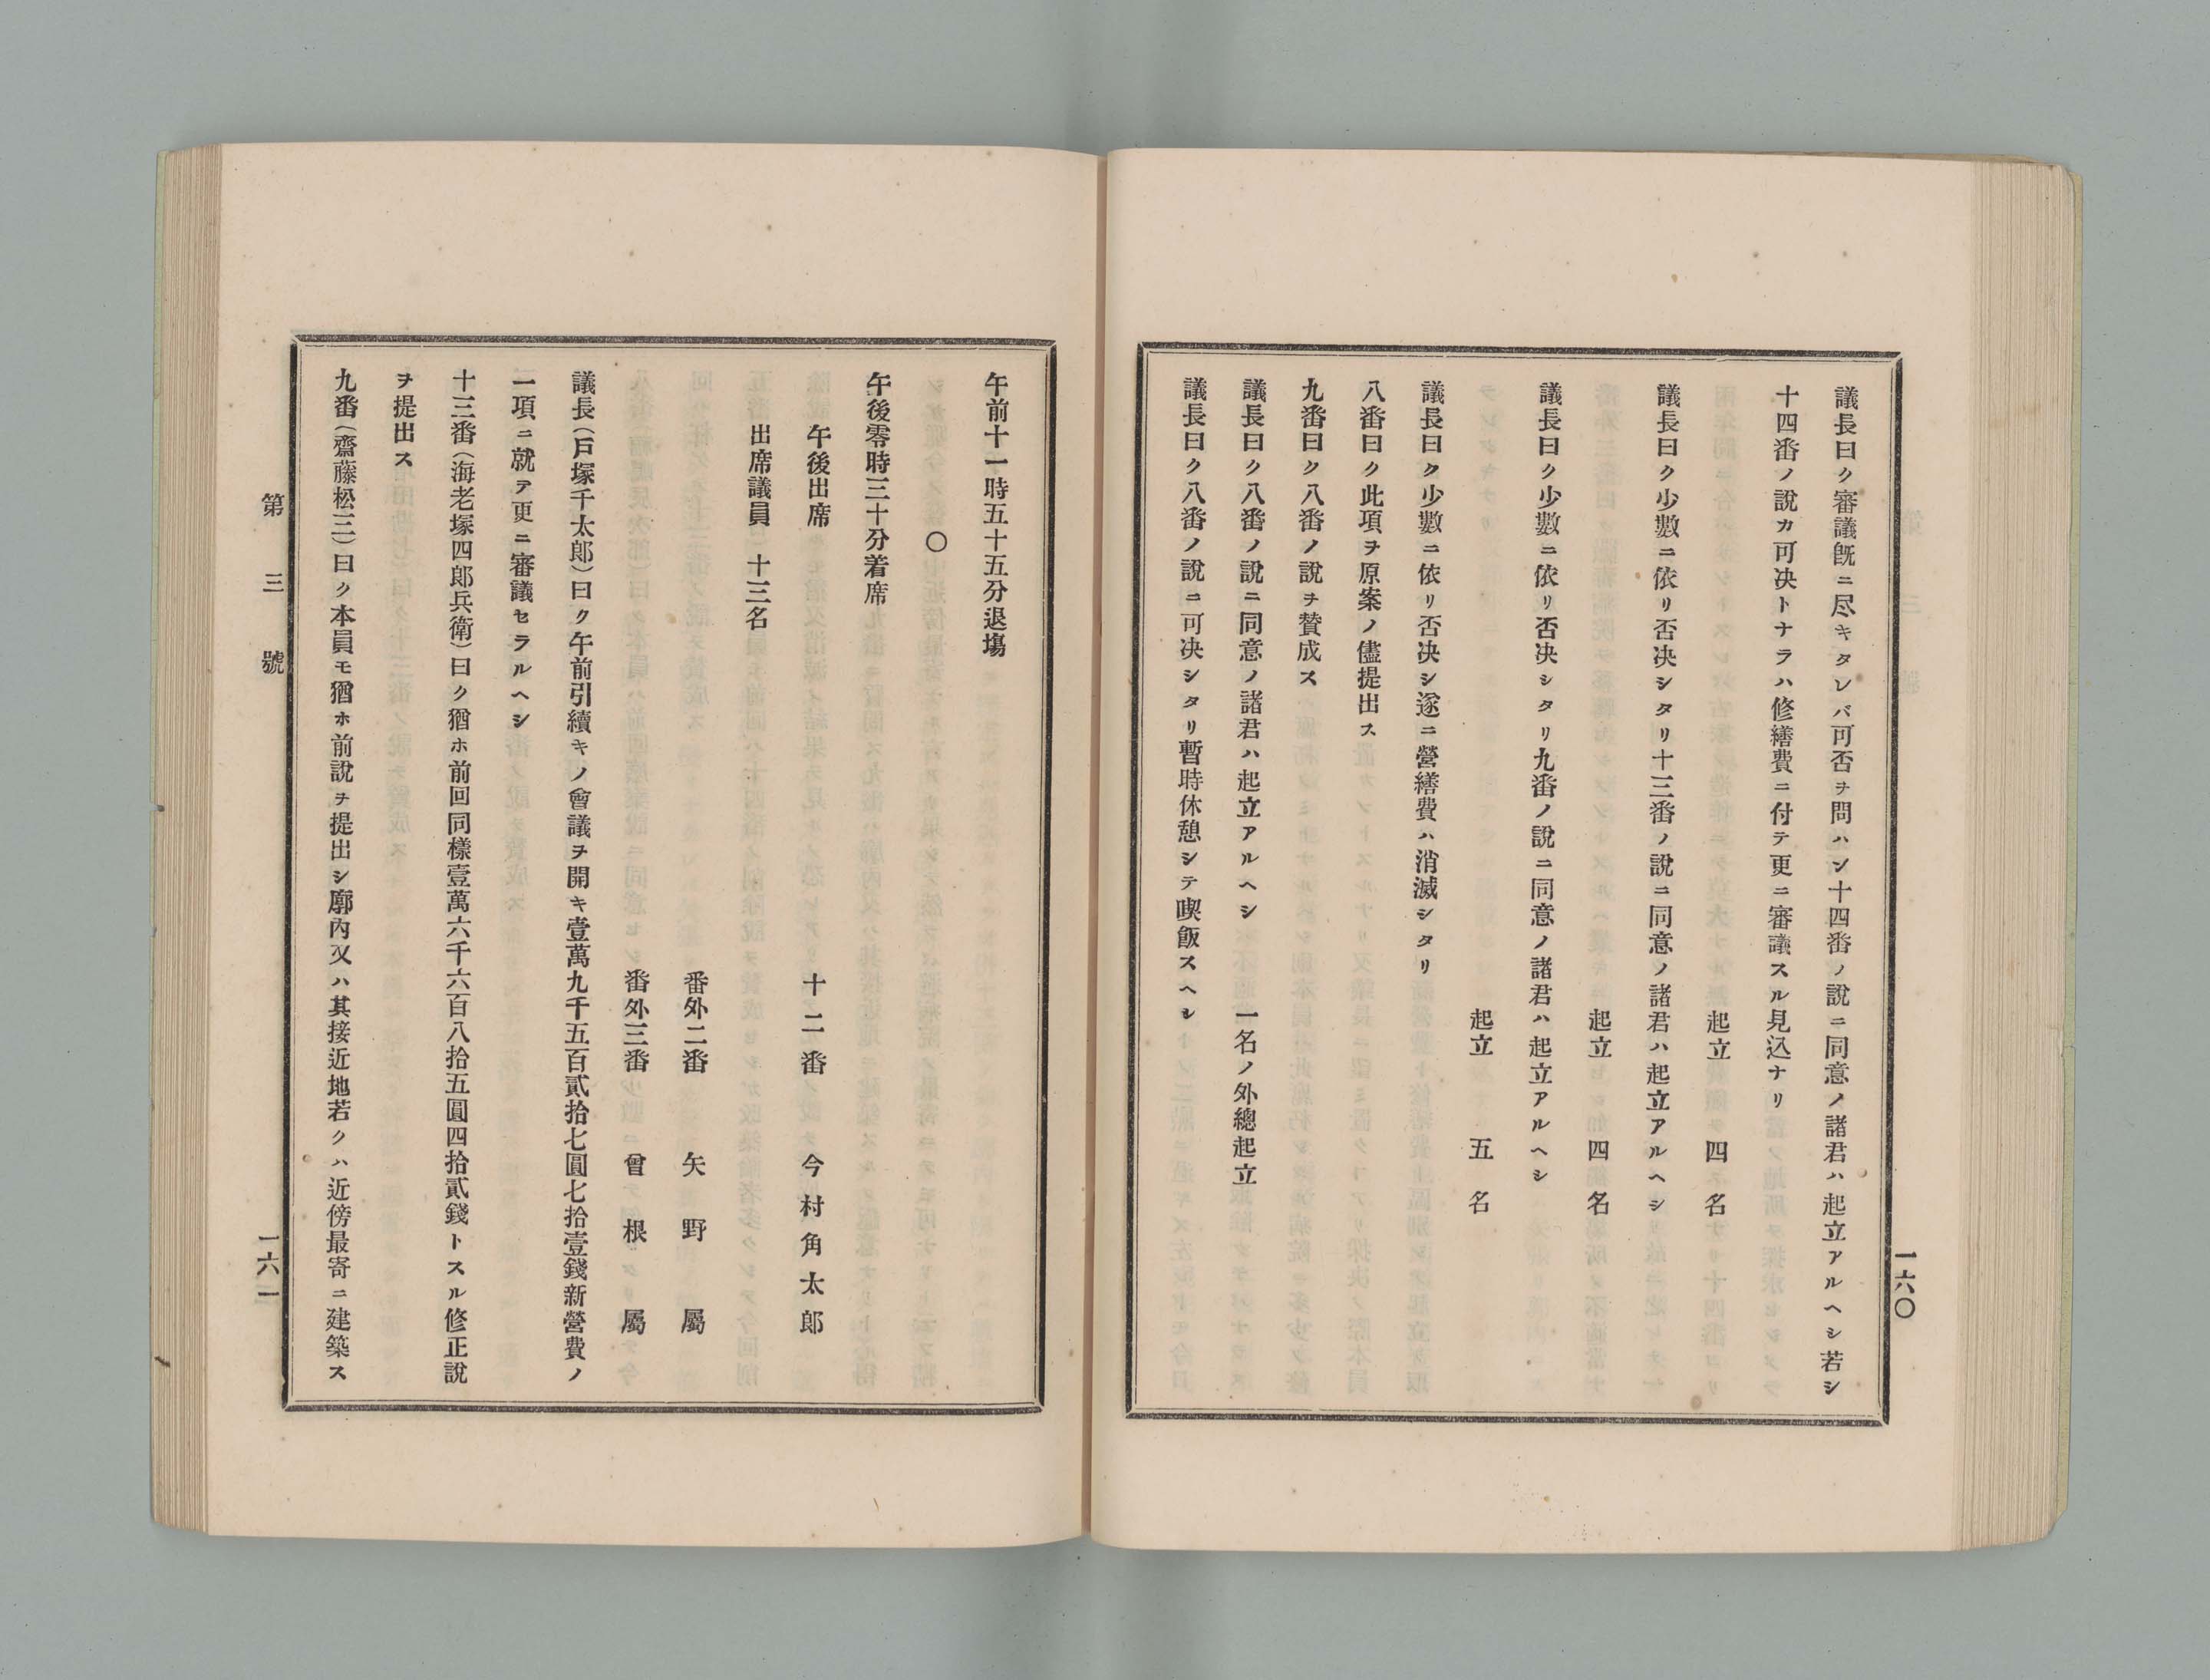 議長曰ク審議既ニ尽キタレバ可否ヲ問ハン十四番ノ說ニ同意ノ諸君ハ起立アルヘシ若シ
十四番ノ說カ可决トナラハ修繕費ニ付テ更ニ審議スル見込ナリ
起立　四名
議長曰ク少數ニ依リ否决シタリ十三番ノ說ニ同意ノ諸君ハ起立アルヘシ
起立　四名
議長曰ク少數ニ依リ否决シタリ九番ノ說ニ同意ノ諸君ハ起立アルヘシ
起立　五名
議長曰ク少數ニ依リ否决シ遂ニ營繕費ハ消滅シタリ
八番曰ク此項ヲ原案ノ儘提出ス
九番曰ク八番ノ說ヲ賛成ス
議長曰ク八番ノ說ニ同意ノ諸君ハ起立アルヘシ　一名ノ外總起立
議長曰ク八番ノ說ニ可决シタリ暫時休憩シテ喫飯スヘシ
一六〇
午前十一時五十五分退塲
〇
午後零時三十分着席
午後出席　十二番　今村角太郎
出席議員　十三名
番外二番　矢野屬
番外三番　曾根屬
議長（戸塚千太郎）曰ク午前引續キノ會議ヲ開キ壹萬九千五百貳拾七圓七拾壹錢新營費ノ
一項ニ就テ更ニ審議セラルヘシ
十三番（海老塚四郎兵衛）曰ク猶ホ前回同樣壹萬六千六百八拾五圓四拾貳錢トスル修正說
ヲ提出ス
九番（齋藤松三）曰ク本員モ猶ホ前說ヲ提出シ廓內又ハ其接近地若クハ近傍最寄ニ建築ス
第三號
一六一